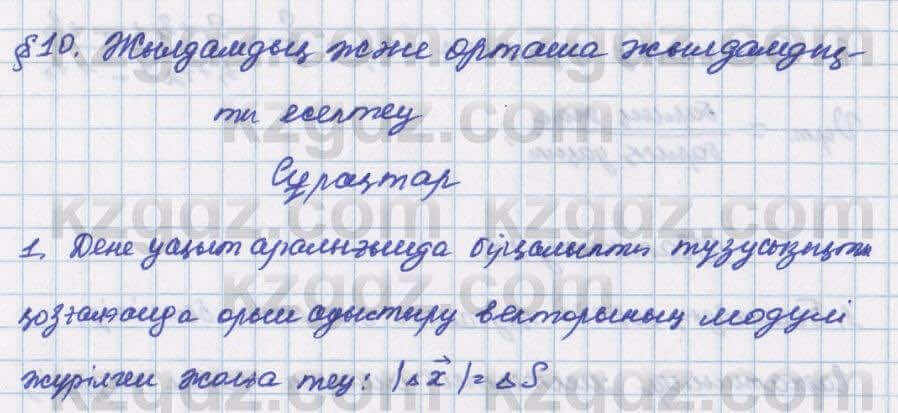 §10. Жылдамдық және орташа жылдамдық-
ты есептеу
Сұрақтар
1. Дене уақыт аралығында бірқалыпты түзусызықты
қозғалғанда орын ауыстыру векторының модулі
жүрілген жолға тең: |Δx⃗|=ΔS
kzgdz.com